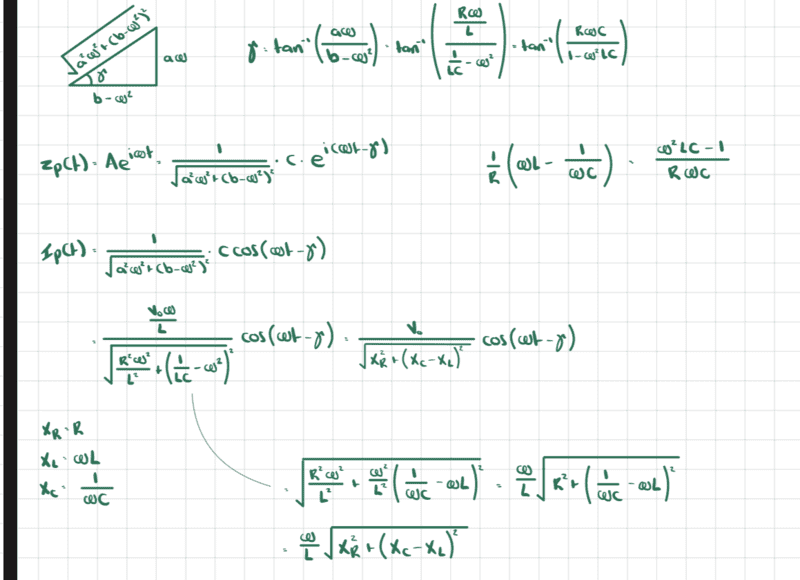 √(a²ω²+(b-ω²)²)
γ
aω
b-ω²
γ = tan⁻¹(aω/(b-ω²)) = tan⁻¹((Rω/L)/(1/LC - ω²)) = tan⁻¹(RωC/(1-ω²LC))
z_p(t) = Ae^{iωt} = 1/√(a²ω²+(b-ω²)²) · c · e^{i(ωt-γ)}
1/R (ωL - 1/ωC) = (ω²LC-1)/(RωC)
I_p(t) = 1/√(a²ω²+(b-ω²)²) · c cos(ωt-γ)
= (V₀ω/L)/√(R²ω²/L² + (1/LC - ω²)²) cos(ωt-γ) = V₀/√(X_R²+(X_C-X_L)²) cos(ωt-γ)
X_R = R
X_L = ωL
X_C = 1/ωC
= √(R²ω²/L² + ω²/L² (1/ωC - ωL)²) = ω/L √(R² + (1/ωC - ωL)²)
= ω/L √(X_R² + (X_C-X_L)²)